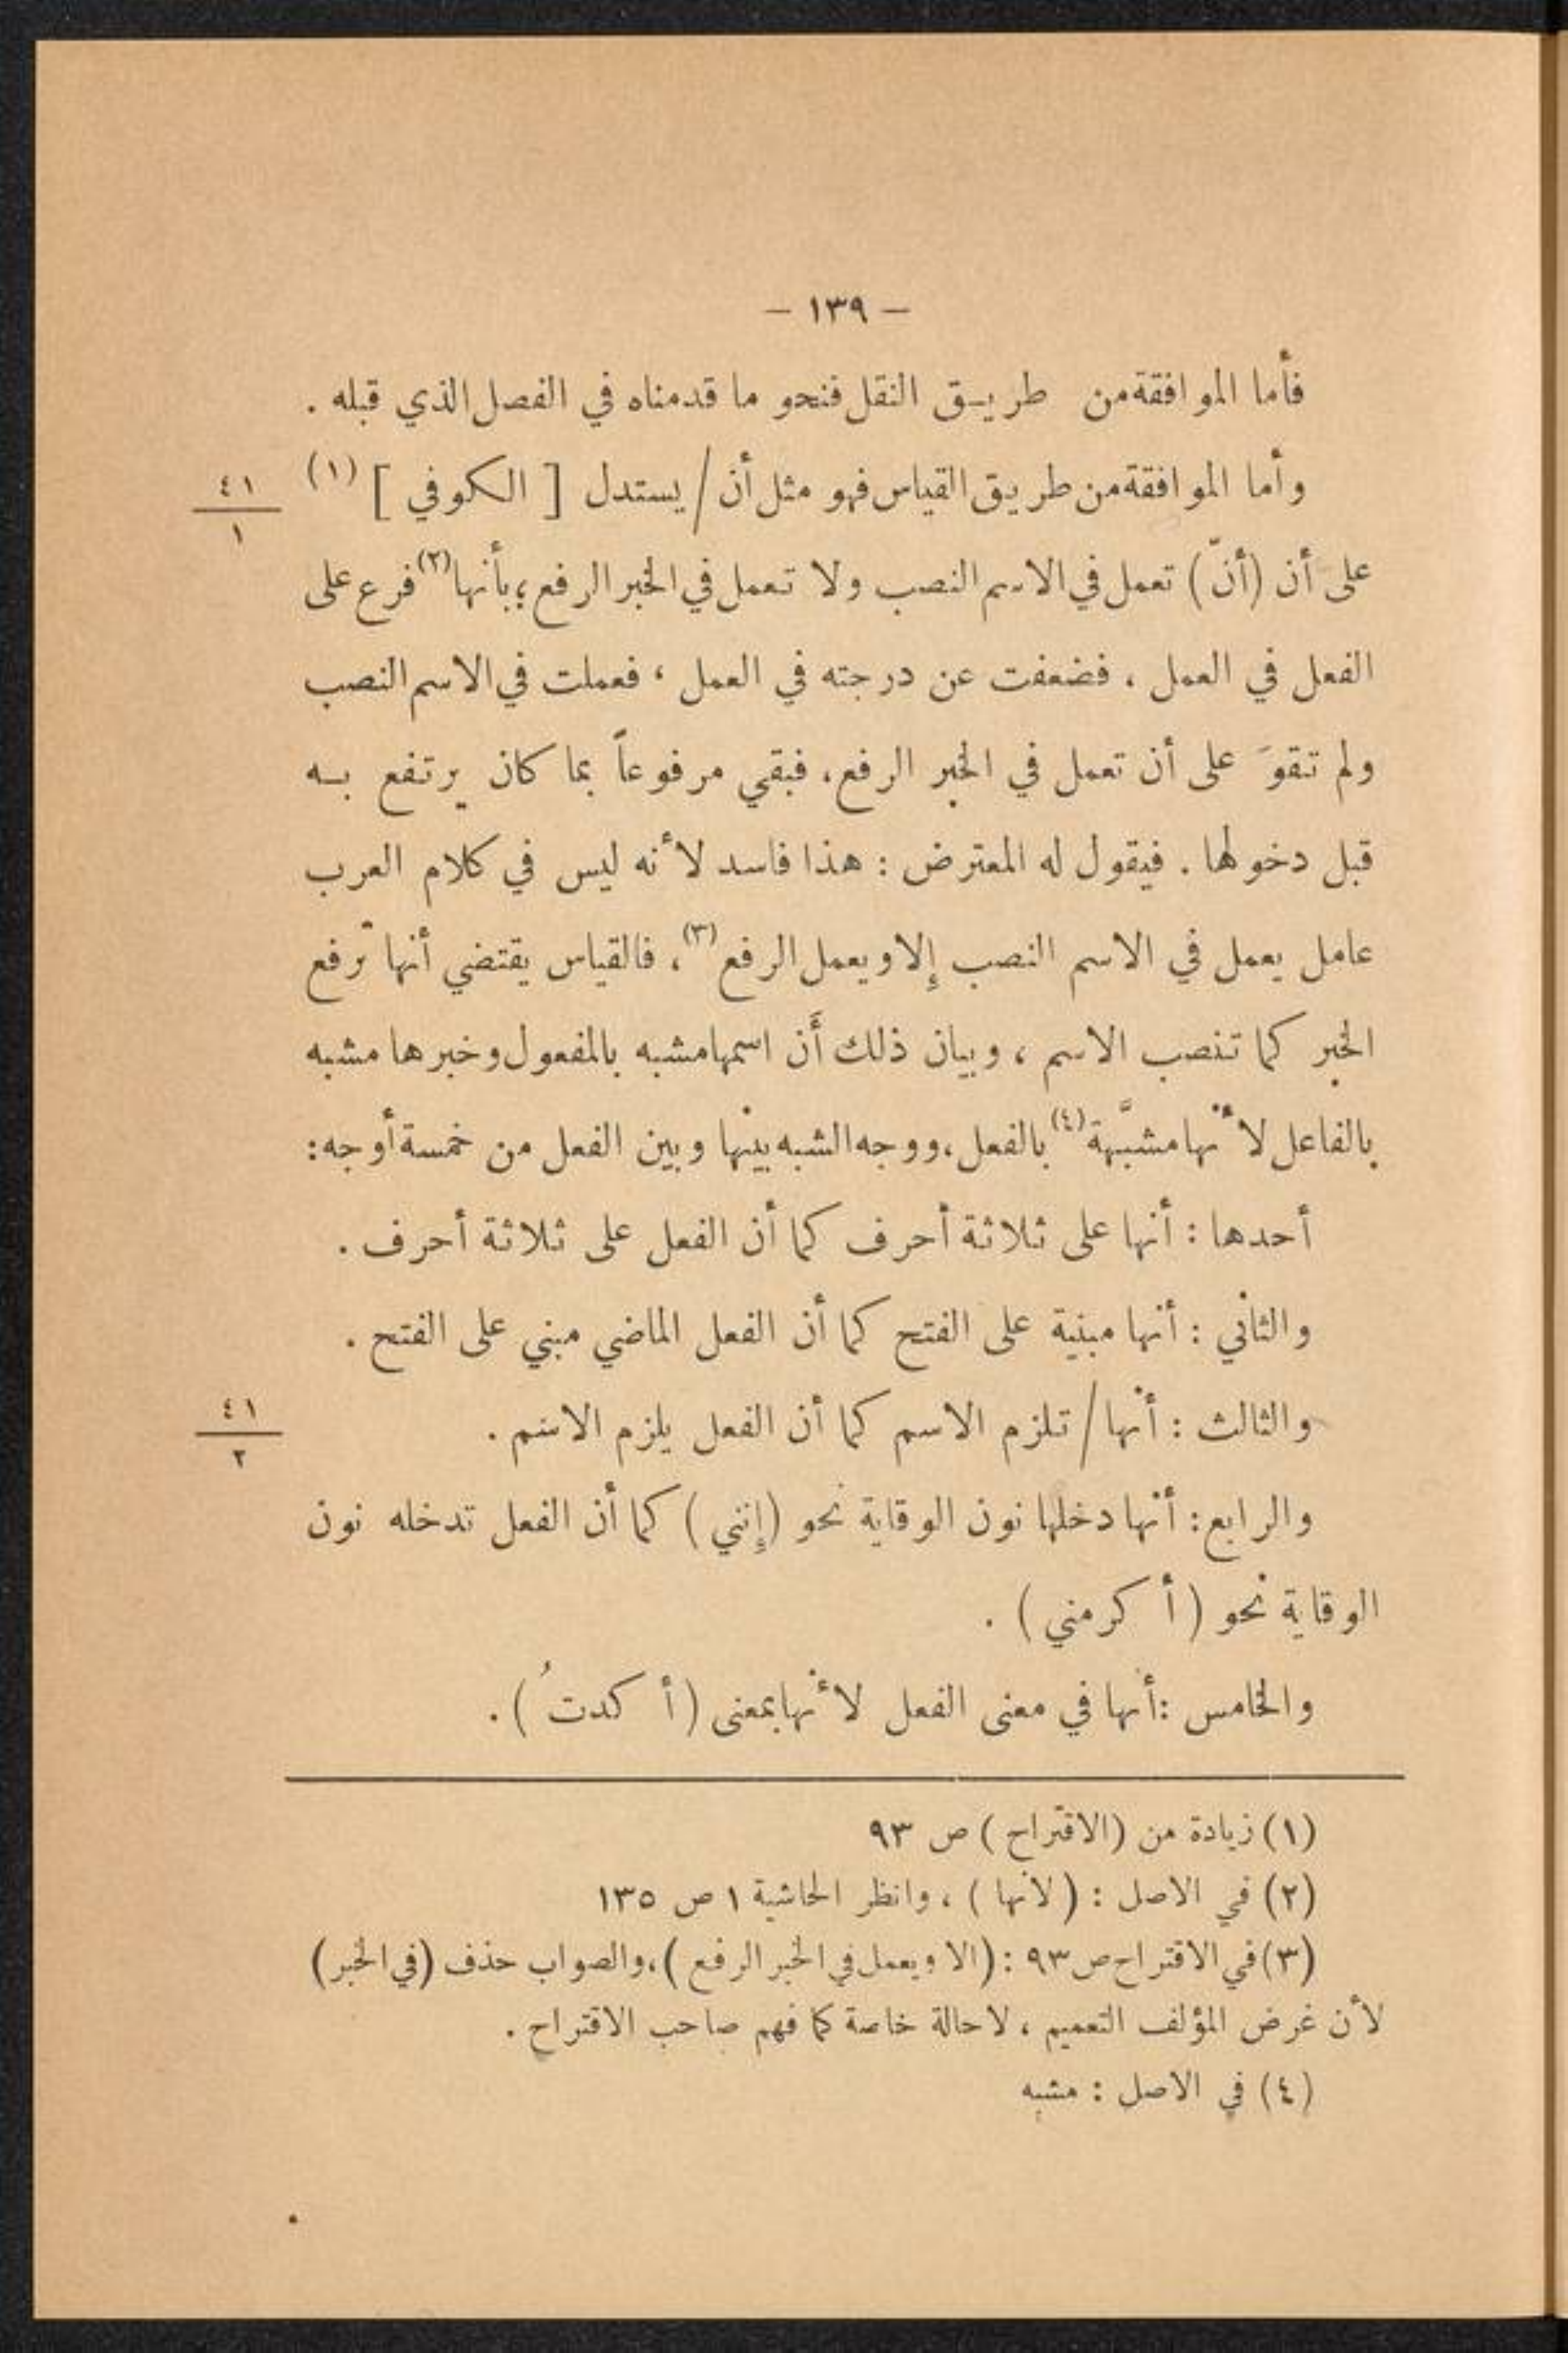 — ١٣٩ —
فأما الموافقة من طريق النقل فنحو ما قدمناه في الفصل الذي قبله .
وأما الموافقة من طريق القياس فهو مثل أن / يستدل [ الكوفي ] (١)
٤١
١
على أن (أنّ) تعمل في الاسم النصب ولا تعمل في الخبر الرفع ؛ بأنها (٢) فرع على
الفعل في العمل ، فضعفت عن درجته في العمل ، فعملت في الاسم النصب
ولم تقوَ على أن تعمل في الخبر الرفع، فبقي مرفوعاً بما كان يرتفع به
قبل دخولها . فيقول له المعترض : هذا فاسد لأنه ليس في كلام العرب
عامل يعمل في الاسم النصب إلا ويعمل الرفع (٣)، فالقياس يقتضي أنها ترفع
الخبر كما تنصب الاسم ، وبيان ذلك أَن اسمها مشبه بالمفعول وخبرها مشبه
بالفاعل لأنها مشبَّهة (٤) بالفعل، ووجه الشبه بينها وبين الفعل من خمسة أوجه:
أحدها : أنها على ثلاثة أحرف كما أن الفعل على ثلاثة أحرف .
والثاني : أنها مبنية على الفتح كما أن الفعل الماضي مبني على الفتح .
والثالث : أنها / تلزم الاسم كما أن الفعل يلزم الاسم .
٤١
٢
والرابع: أنها دخلها نون الوقاية نحو (إنني) كما أن الفعل تدخله نون
الوقاية نحو (أكرمني) .
والخامس : أنها في معنى الفعل لأنها بمعنى (أكدتُ) .
(١) زيادة من (الاقتراح) ص ٩٣
(٢) في الاصل : (لانها) ، وانظر الحاشية ١ ص ١٣٥
(٣) في الاقتراح ص ٩٣ : (الا ويعمل في الخبر الرفع)، والصواب حذف (في الخبر)
لأن غرض المؤلف التعميم ، لا حالة خاصة كما فهم صاحب الاقتراح .
(٤) في الاصل : مشبه